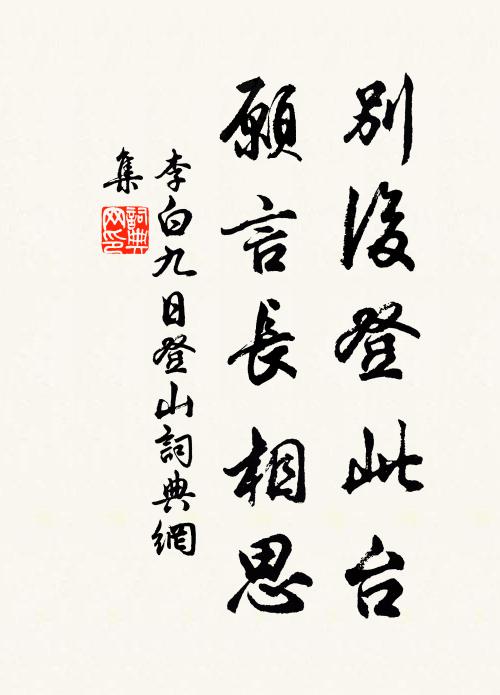 別後登此台
願言長相思
李白九日登山詞典網
集
詞典
网印